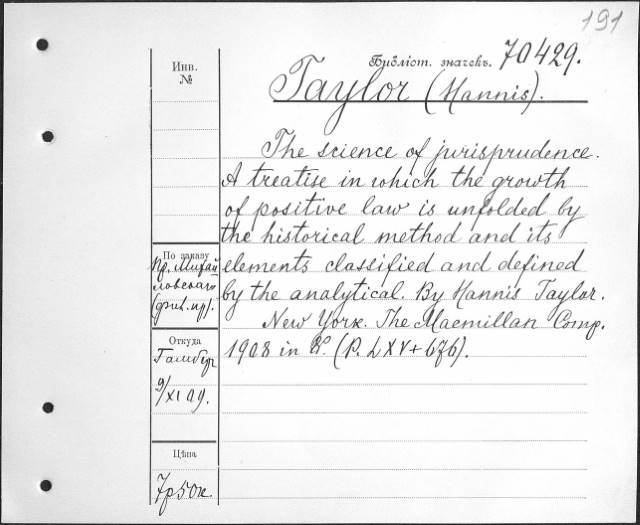 191
Библіот. значекъ. 70429.
Инв.
№
Taylor (Hannis).
The science of jurisprudence.
A treatise in which the growth
of positive law is unfolded by
the historical method and its
elements classified and defined
by the analytical. By Hannis Taylor.
New York. The Macmillan Comp.
1908 in 8º. (P. LXV + 676).
По заказу
Пр. Михай
ловскаго
Откуда
Гамбург
9/XI 09.
Цѣна
7р50к.